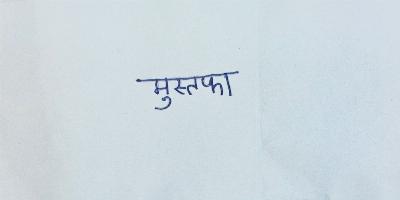 मुस्तफा